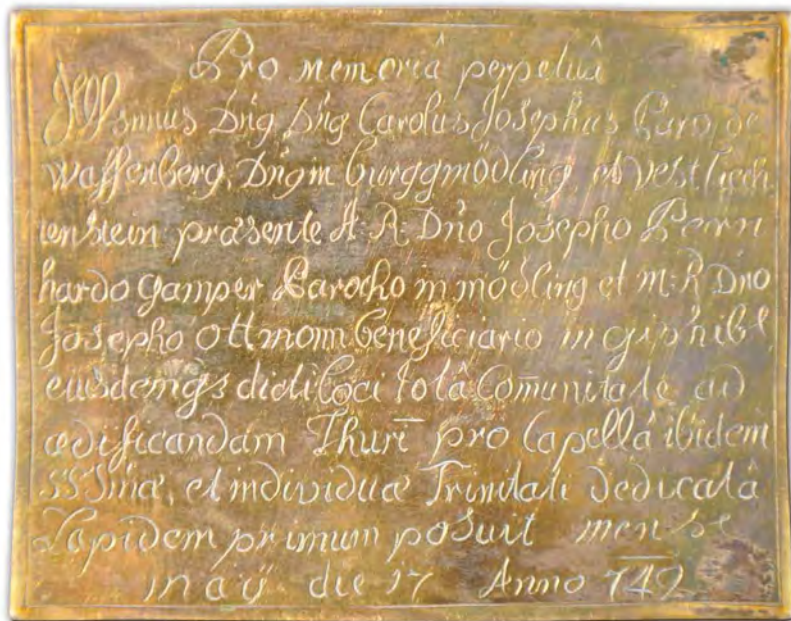 Pro memoriâ perpetuâ
Illsmus Dn͠g Dn͠g Carolus Josephus Baro de
Waffenberg, Dn͠g in burggmödling, et Vestliech
tenstein præsente A: R: Dn͠o Josepho Bern
hardo Gamper Parocho in mödling et m: R Dno
Josepho Ottmom beneficiario in giphibl
eiusdemqs dicti loci totâ Com̄unitate ad
ædificandam Thurī pro Capellâ ibidem
SSTmæ, et individuæ Trinitati dedicatâ
Lapidem primum posuit mense
maÿ die 17 Anno 749